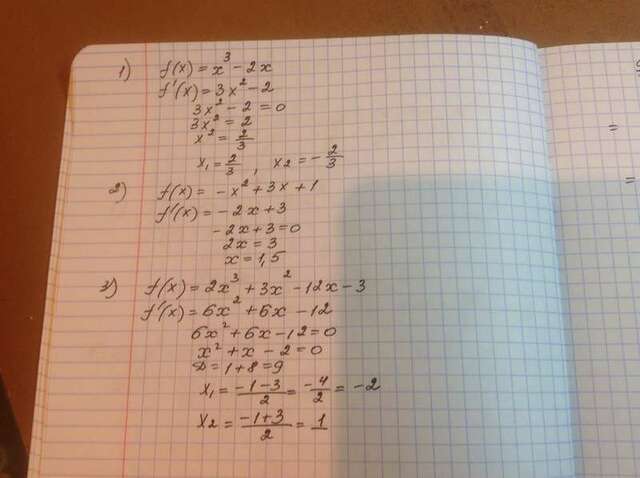 1) f(x) = x³ - 2x
f'(x) = 3x² - 2
3x² - 2 = 0
3x² = 2
x² = 2/3
x₁ = 2/3 , x₂ = - 2/3
2) f(x) = -x² + 3x + 1
f'(x) = -2x + 3
-2x + 3 = 0
2x = 3
x = 1,5
3) f(x) = 2x³ + 3x² - 12x - 3
f'(x) = 6x² + 6x - 12
6x² + 6x - 12 = 0
x² + x - 2 = 0
D = 1 + 8 = 9
x₁ = (-1-3)/2 = -4/2 = -2
x₂ = (-1+3)/2 = 1
=
=